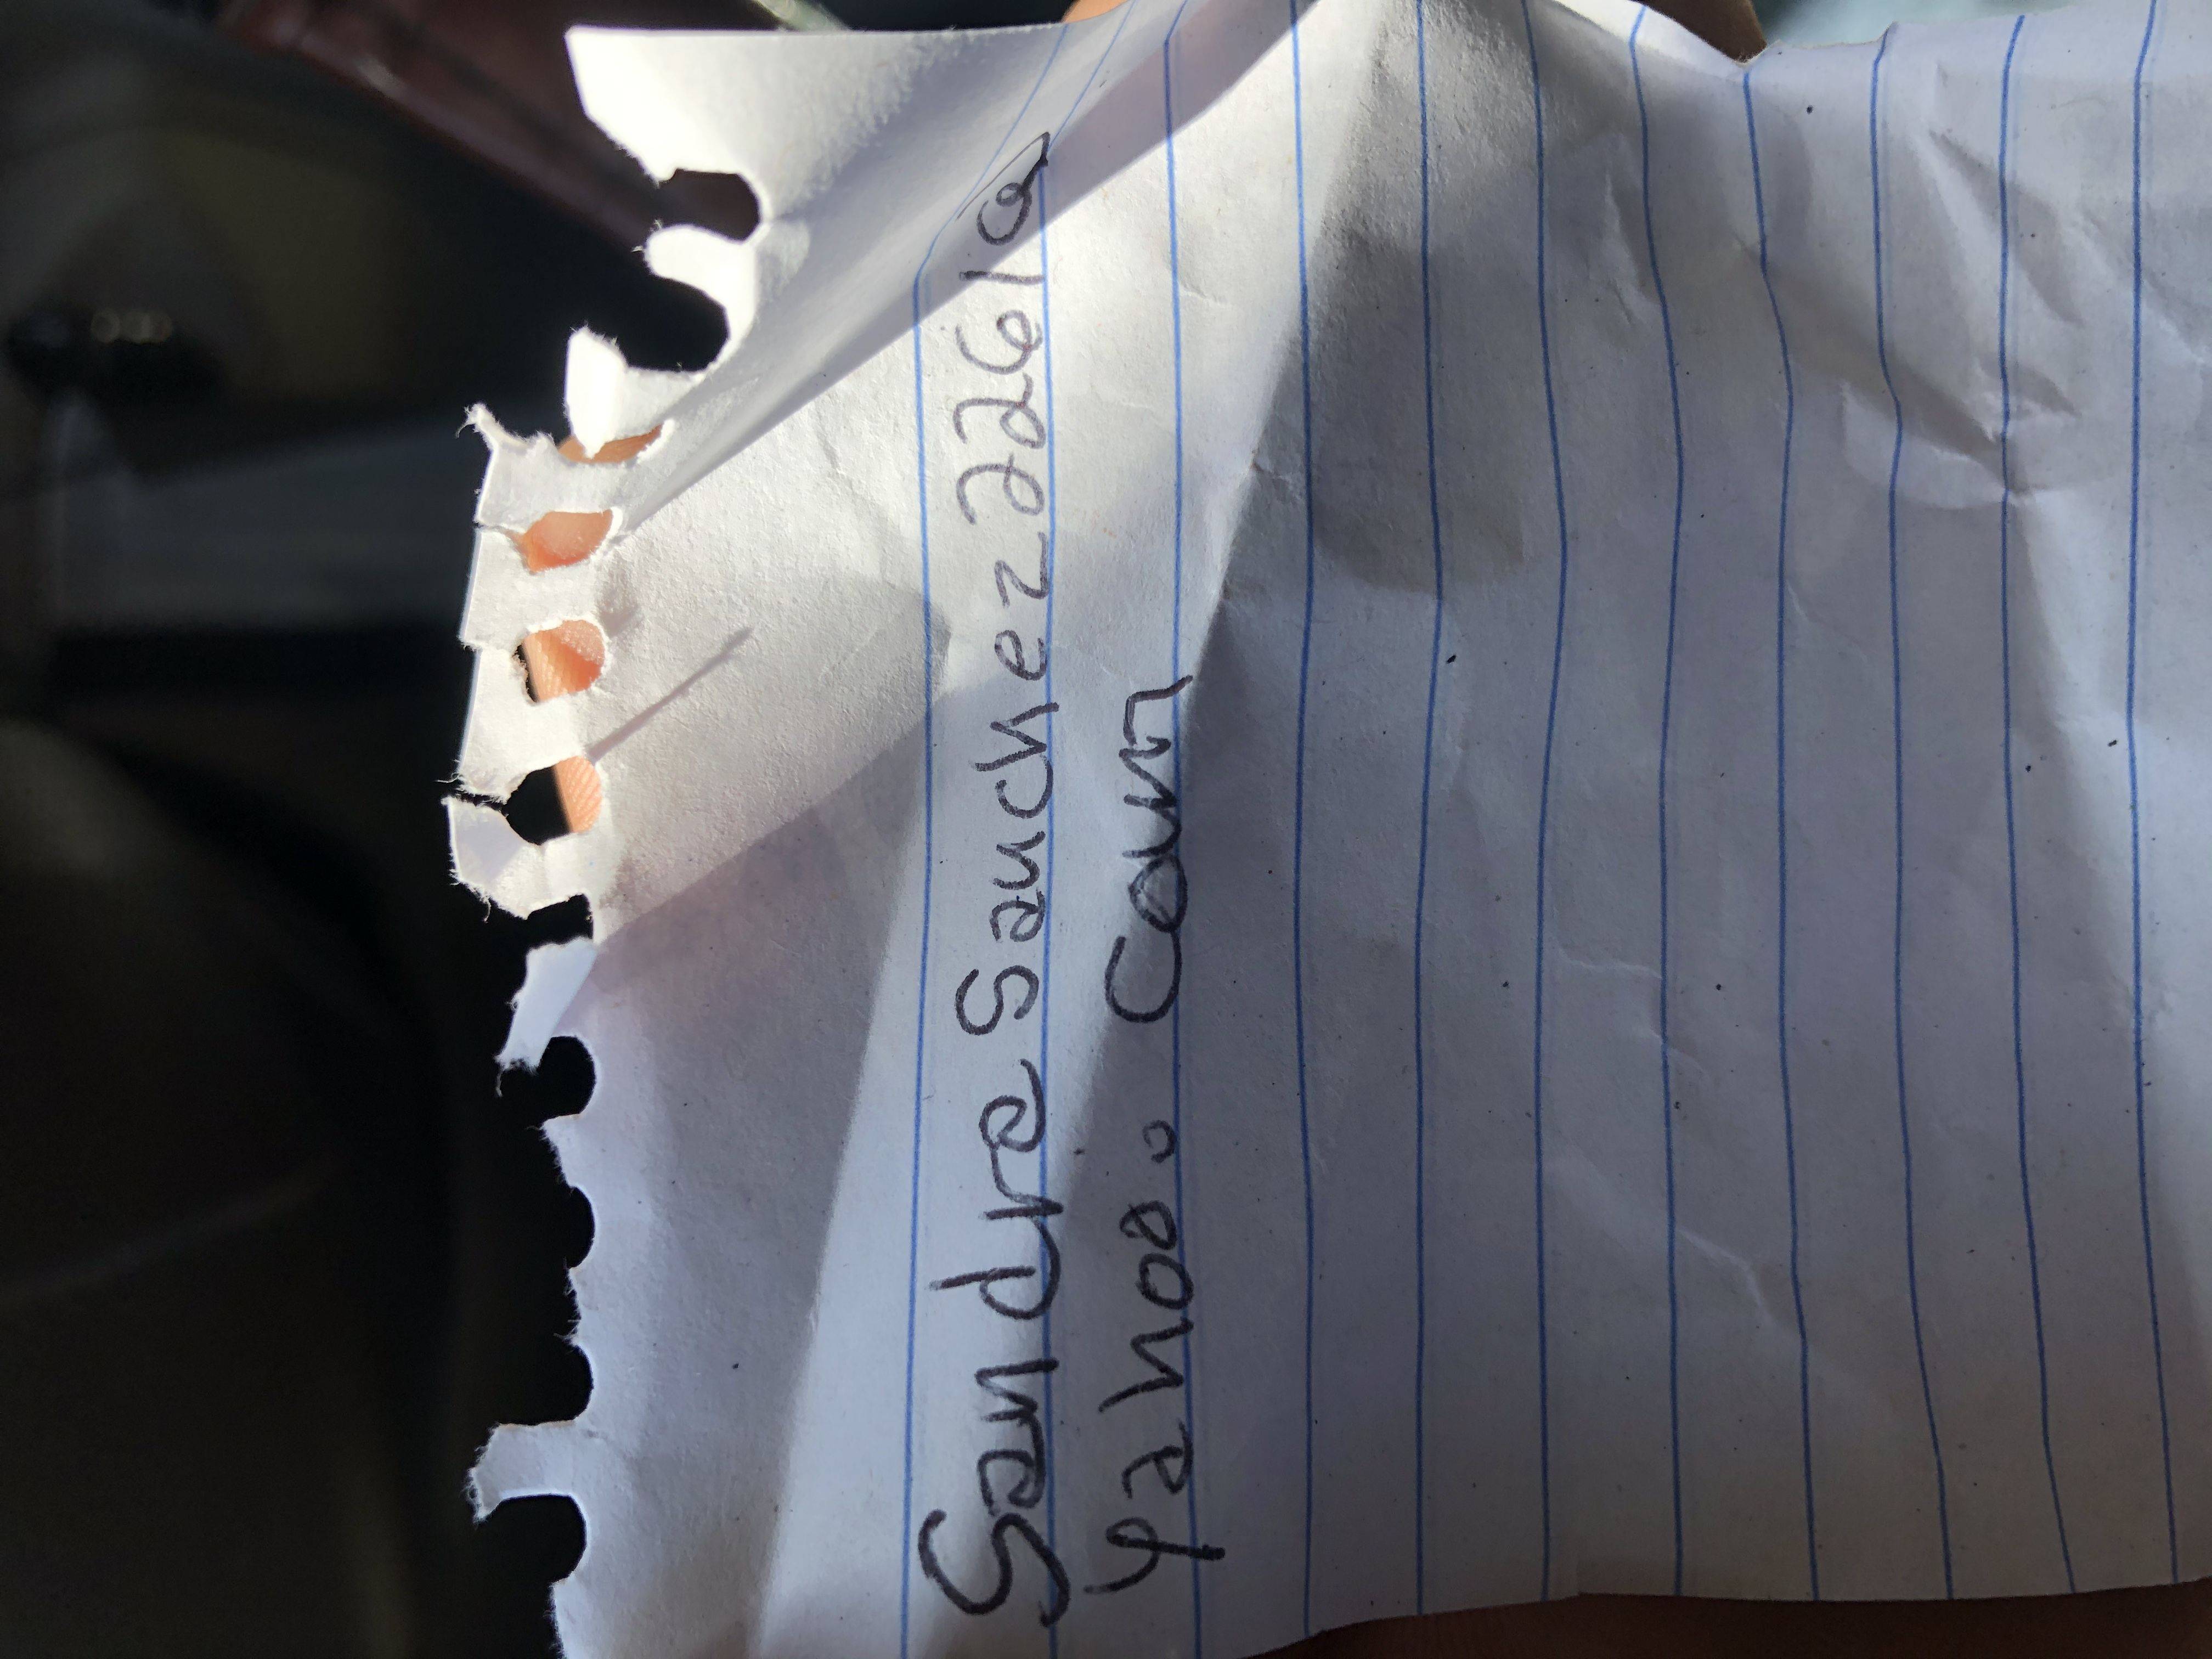 Sandra Sanchez 22610
yahoo. com